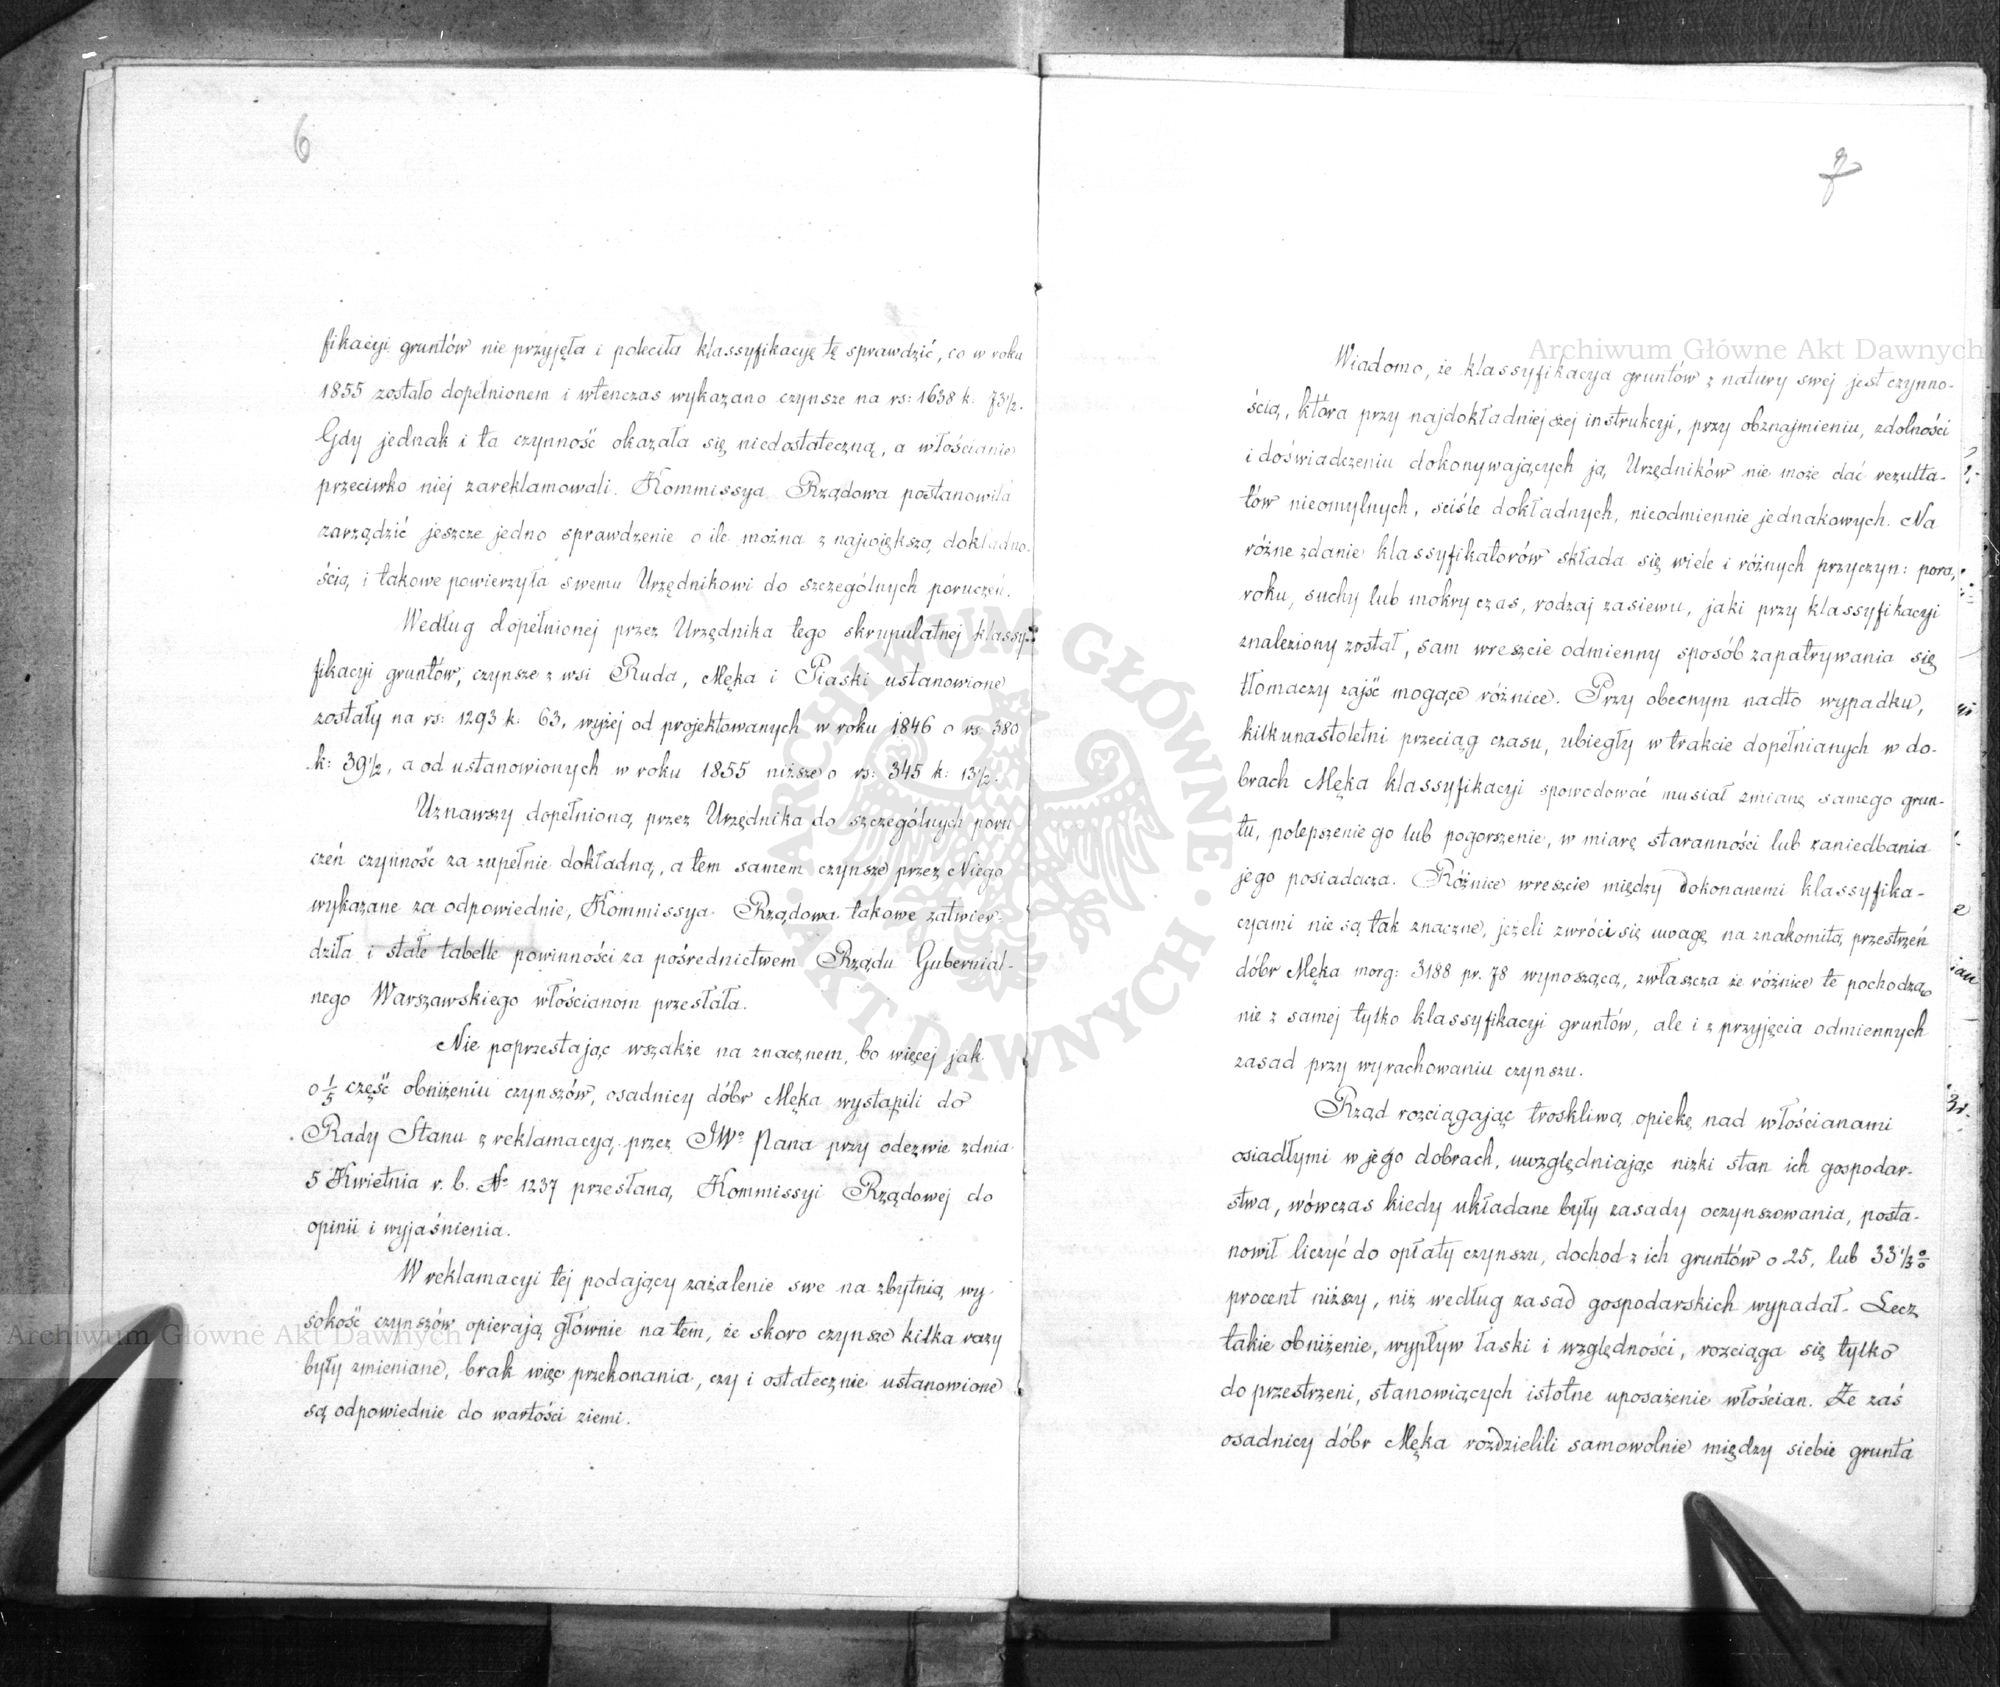 6
fikacyi gruntów nie przyjęła i poleciła klassyfikacyę tę sprawdzić, co w roku
1855 zostało dopełnionem i wtenczas wykazano czynsze na rs: 1638 k: 73½.
Gdy jednak i ta czynność okazała się niedostateczną, a włościanie
przeciwko niej zareklamowali. Kommissya Rządowa postanowiła
zarządzić jeszcze jedno sprawdzenie o ile można z największą dokładno-
ścią i takowe powierzyła swemu Urzędnikowi do szczególnych poruczeń.
Według dopełnionej przez Urzędnika tego skrupulatnej klassy-
fikacyi gruntów, czynsze z wsi Ruda, Męka i Piaski ustanowione
zostały na rs: 1293 k: 63, wyżej od projektowanych w roku 1846 o rs: 380
k: 39½, a od ustanowionych w roku 1855 niższe o rs: 345 k: 13½.
Uznawszy dopełnioną przez Urzędnika do szczególnych poru-
czeń czynność za zupełnie dokładną, a tem samem czynsze przez Niego
wykazane za odpowiednie, Kommissya Rządowa takowe zatwier-
dziła i stałe tabelle powinności za pośrednictwem Rządu Gubernial-
nego Warszawskiego włościanom przesłała.
Nie poprzestając wszakże na znacznem, bo więcej jak
o 1/5 część obniżeniu czynszów, osadnicy dóbr Męka wystąpili do
Rady Stanu z reklamacyą przez JWo Pana przy odezwie z dnia
5 Kwietnia r. b. No 1237 przesłaną Kommissyi Rządowej do
opinii i wyjaśnienia.
W reklamacyi tej podający zażalenie swe na zbytnią wy-
sokość czynszów opierają głównie na tem, że skoro czynsze kilka razy
były zmieniane, brak więc przekonania, czy i ostatecznie ustanowione
są odpowiednie do wartości ziemi.
7
Wiadomo, że klassyfikacya gruntów z natury swej jest czynno-
ścią, która przy najdokładniejszej instrukcyi, przy obznajmieniu, zdolności
i doświadczeniu dokonywających ją Urzędników nie może dać rezulta-
tów nieomylnych, ściśle dokładnych, nieodmiennie jednakowych. Na
różne zdanie klassyfikatorów składa się wiele i różnych przyczyn: pora
roku, suchy lub mokry czas, rodzaj zasiewu, jaki przy klassyfikacyi
znaleziony został, sam wreszcie odmienny sposób zapatrywania się
tłomaczy zajść mogące różnice. Przy obecnym nadto wypadku,
kilkunastoletni przeciąg czasu, ubiegły w trakcie dopełnianych w do-
brach Męka klassyfikacyi spowodować musiał zmianę samego grun-
tu, polepszenie go lub pogorszenie, w miarę staranności lub zaniedbania
jego posiadacza. Różnice wreszcie między dokonanemi klassyfika-
cyami nie są tak znaczne, jeżeli zwróci się uwagę na znakomitą przestrzeń
dóbr Męka morg: 3188 pr. 78 wynoszącą, zwłaszcza że różnice te pochodzą
nie z samej tylko klassyfikacyi gruntów, ale i z przyjęcia odmiennych
zasad przy wyrachowaniu czynszu.
Rząd rozciągając troskliwą opiekę nad włościanami
osiadłymi w jego dobrach, uwzględniając nizki stan ich gospodar-
stwa, wówczas kiedy układane były zasady oczynszowania, posta-
nowił liczyć do opłaty czynszu, dochod z ich gruntów o 25, lub 33⅓ %
procent niższy, niż według zasad gospodarskich wypadał. Lecz
takie obniżenie, wypływ łaski i względności, rozciąga się tylko
do przestrzeni, stanowiących istotne uposażenie włościan. Że zaś
osadnicy dóbr Męka rozdzielili samowolnie między siebie grunta
Archiwum Główne Akt Dawnych
Archiwum Główne Akt Dawnych
ARCHIWUM GŁÓWNE AKT DAWNYCH